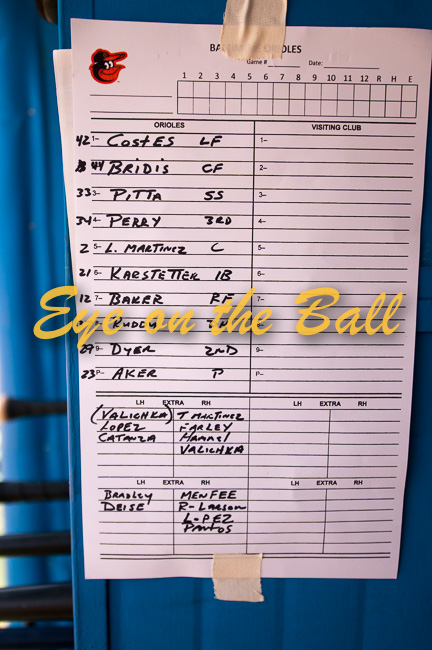 ORIOLES
Game # Date:
1 2 3 4 5 6 7 8 9 10 11 12 R H E
ORIOLES VISITING CLUB
42 1- COSTES LF 1-
44 BRIDIS CF 2-
33 3- PITTA SS 3-
34 4- PERRY 3RD 4-
2 5- L. MARTINEZ C 5-
21 6- KARSTETTER 1B 6-
12 7- BAKER RF 7-
Eye on the Ball
RUDDY
29 9- DYER 2ND 9-
23 P- AKER P P-
LH EXTRA RH LH EXTRA RH
(VALICHKA) T MARTINEZ
LOPEZ FARLEY
CATANZA HAMMEL
VALICHKA
LH EXTRA RH LH EXTRA RH
BRADLEY MENFEE
DEISE R-LARSON
LOPEZ
PANTOS